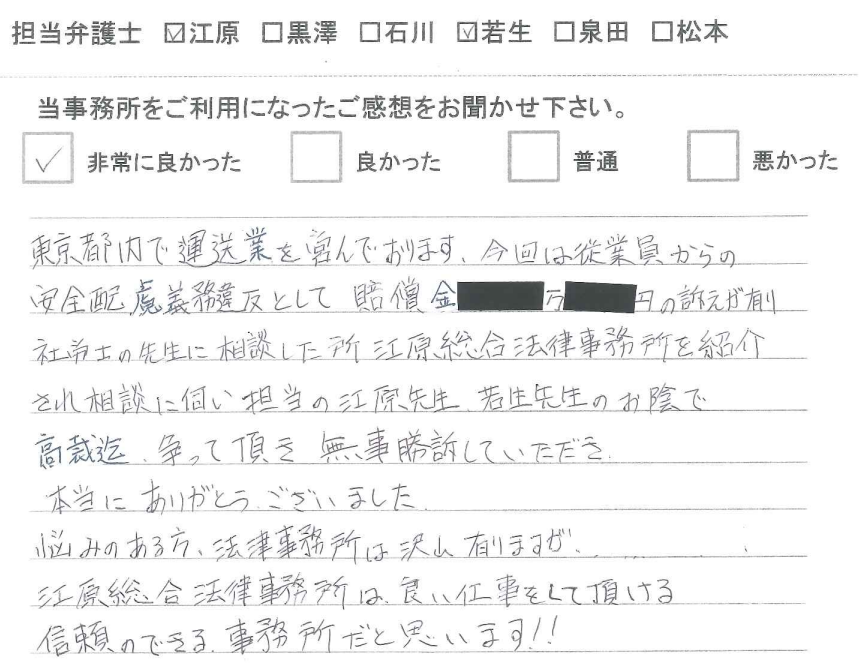 担当弁護士 ☑江原 □黒澤 □石川 ☑若生 □泉田 □松本
当事務所をご利用になったご感想をお聞かせ下さい。
☑ 非常に良かった □ 良かった □ 普通 □ 悪かった
東京都内で運送業を営んでおります、今回は従業員からの
安全配慮義務違反として 賠償金 万 円の訴えが有り
社労士の先生に相談した所 江原総合法律事務所を紹介
され相談に伺い担当の江原先生、若生先生のお陰で
高裁迄、争って頂き 無事勝訴していただき、
本当に ありがとうございました
悩みのある方、法律事務所は沢山有りますが、......
江原総合法律事務所は、良い仕事をして頂ける
信頼のできる事務所だと思います!!